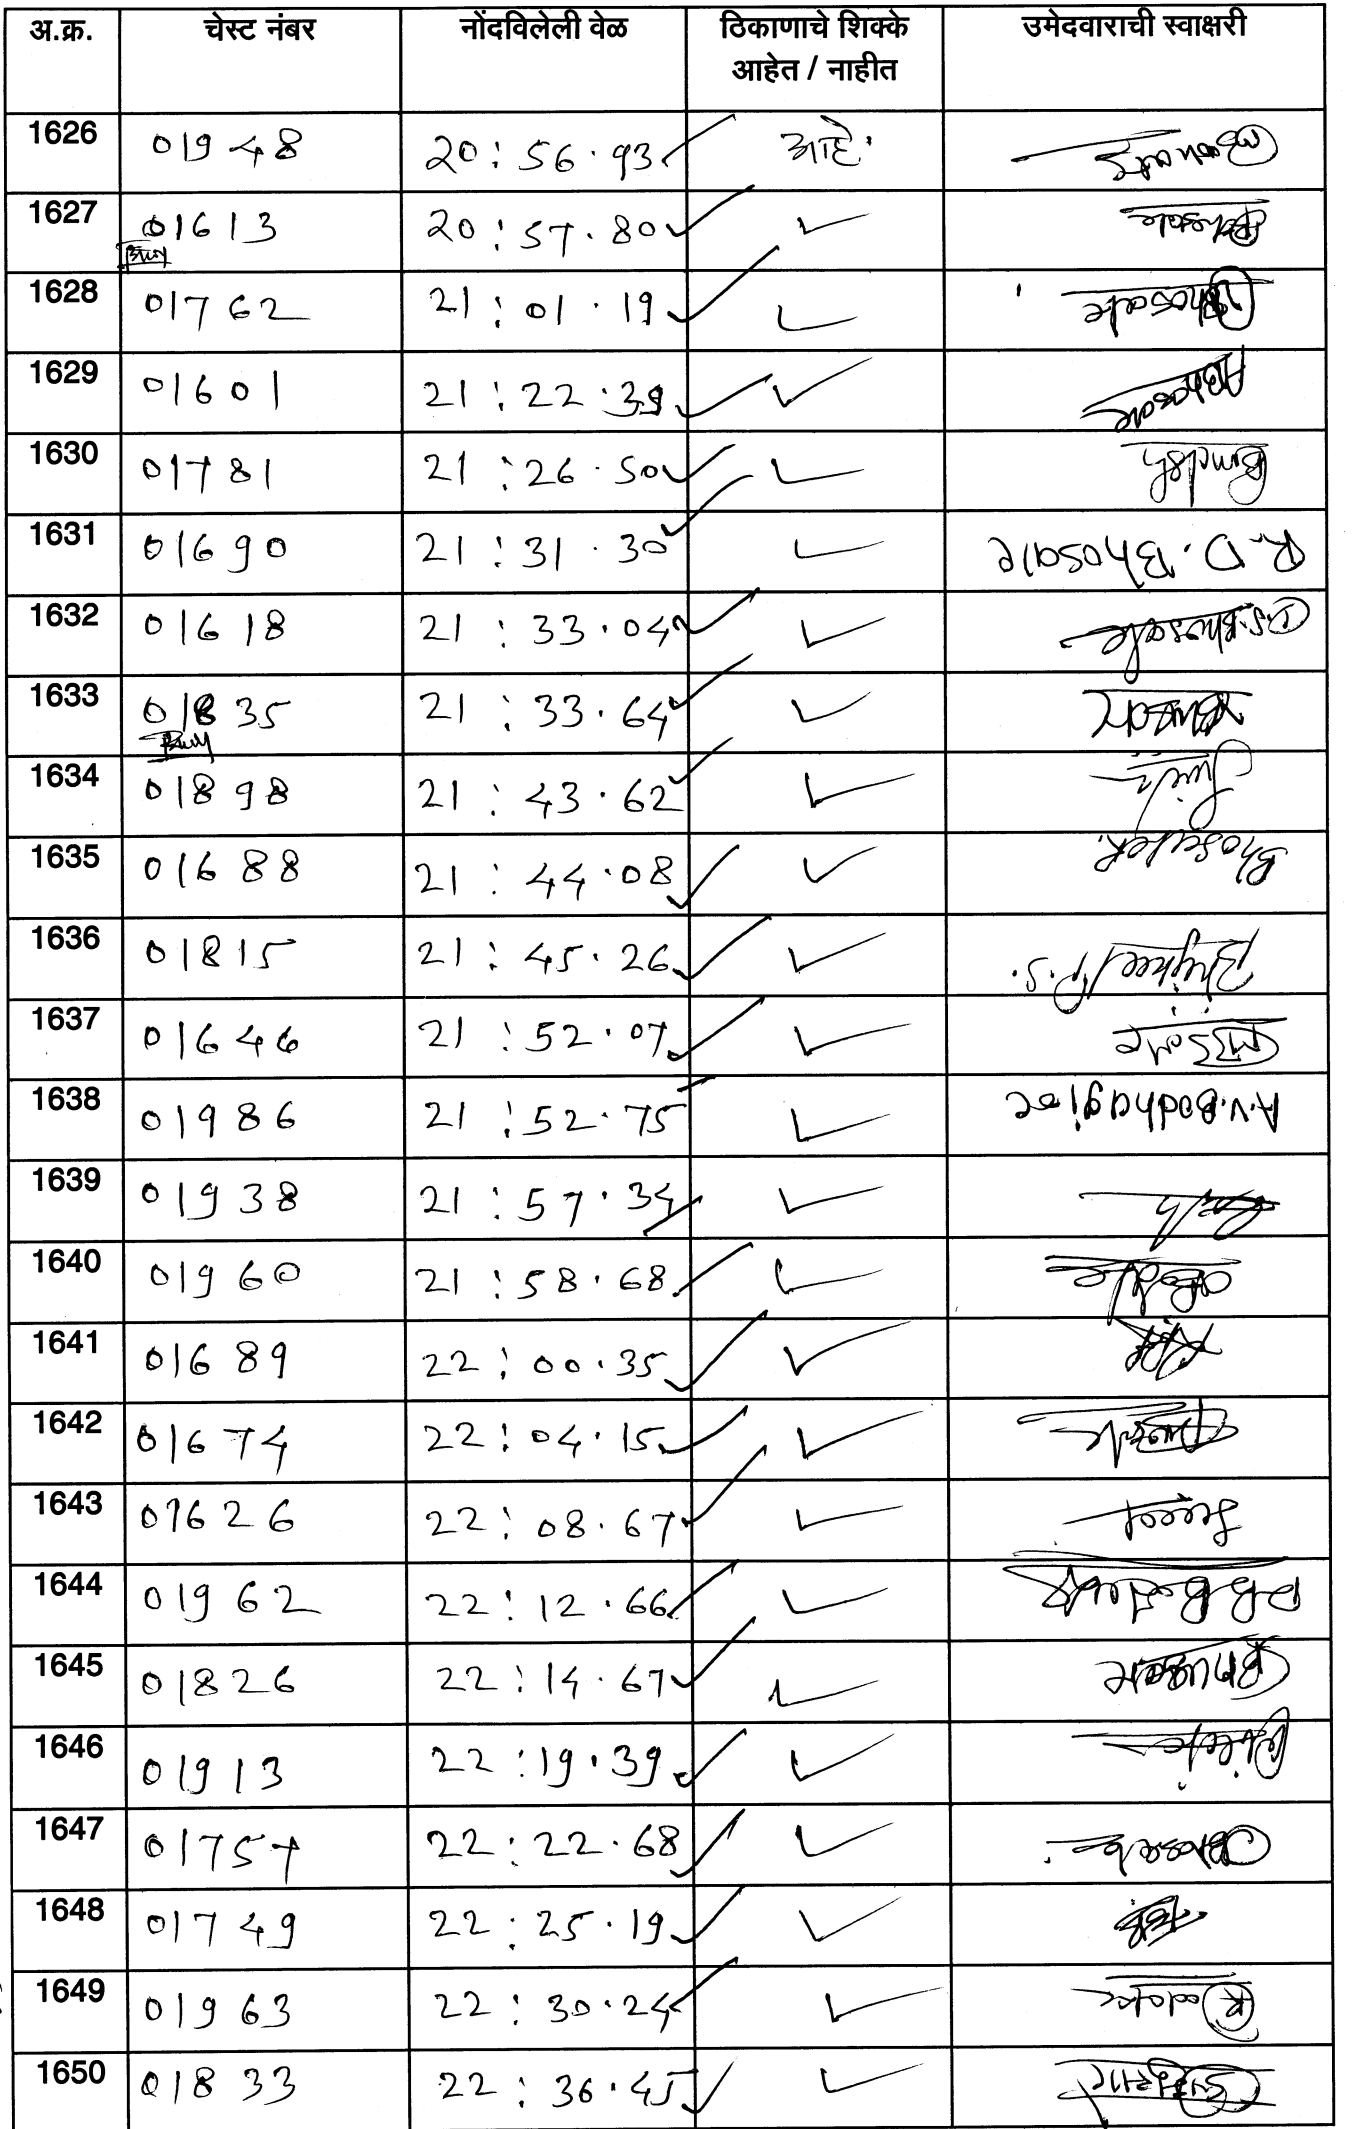 अ.क्र. चेस्ट नंबर नोंदविलेली वेळ ठिकाणाचे शिक्के आहेत / नाहीत उमेदवाराची स्वाक्षरी
1626 01948 20:56.93 आहे.
1627 01613 20:57.80 ✓
1628 01762 21:01.19 ✓ Bhosale
1629 01601 21:22.39 ✓ ABhosale
1630 01781 21:26.50 ✓
1631 01690 21:31.30 ✓ R.D. Bhosale
1632 01618 21:33.04 ✓ D.S.Bhosale
1633 01835 21:33.64 ✓
1634 01898 21:43.62 ✓
1635 01688 21:44.08 ✓ Bhosale R.
1636 01815 21:45.26 ✓ P.S.
1637 01646 21:52.07 ✓
1638 01986 21:52.75 ✓ A.V.Badhagire
1639 01938 21:57.34 ✓
1640 01960 21:58.68 ✓
1641 01689 22:00.35 ✓
1642 01674 22:04.15 ✓
1643 01626 22:08.67 ✓
1644 01962 22:12.66 ✓
1645 01826 22:14.67 ✓
1646 01913 22:19.39 ✓
1647 01757 22:22.68 ✓
1648 01749 22:25.19 ✓
1649 01963 22:30.24 ✓
1650 01833 22:36.45 ✓